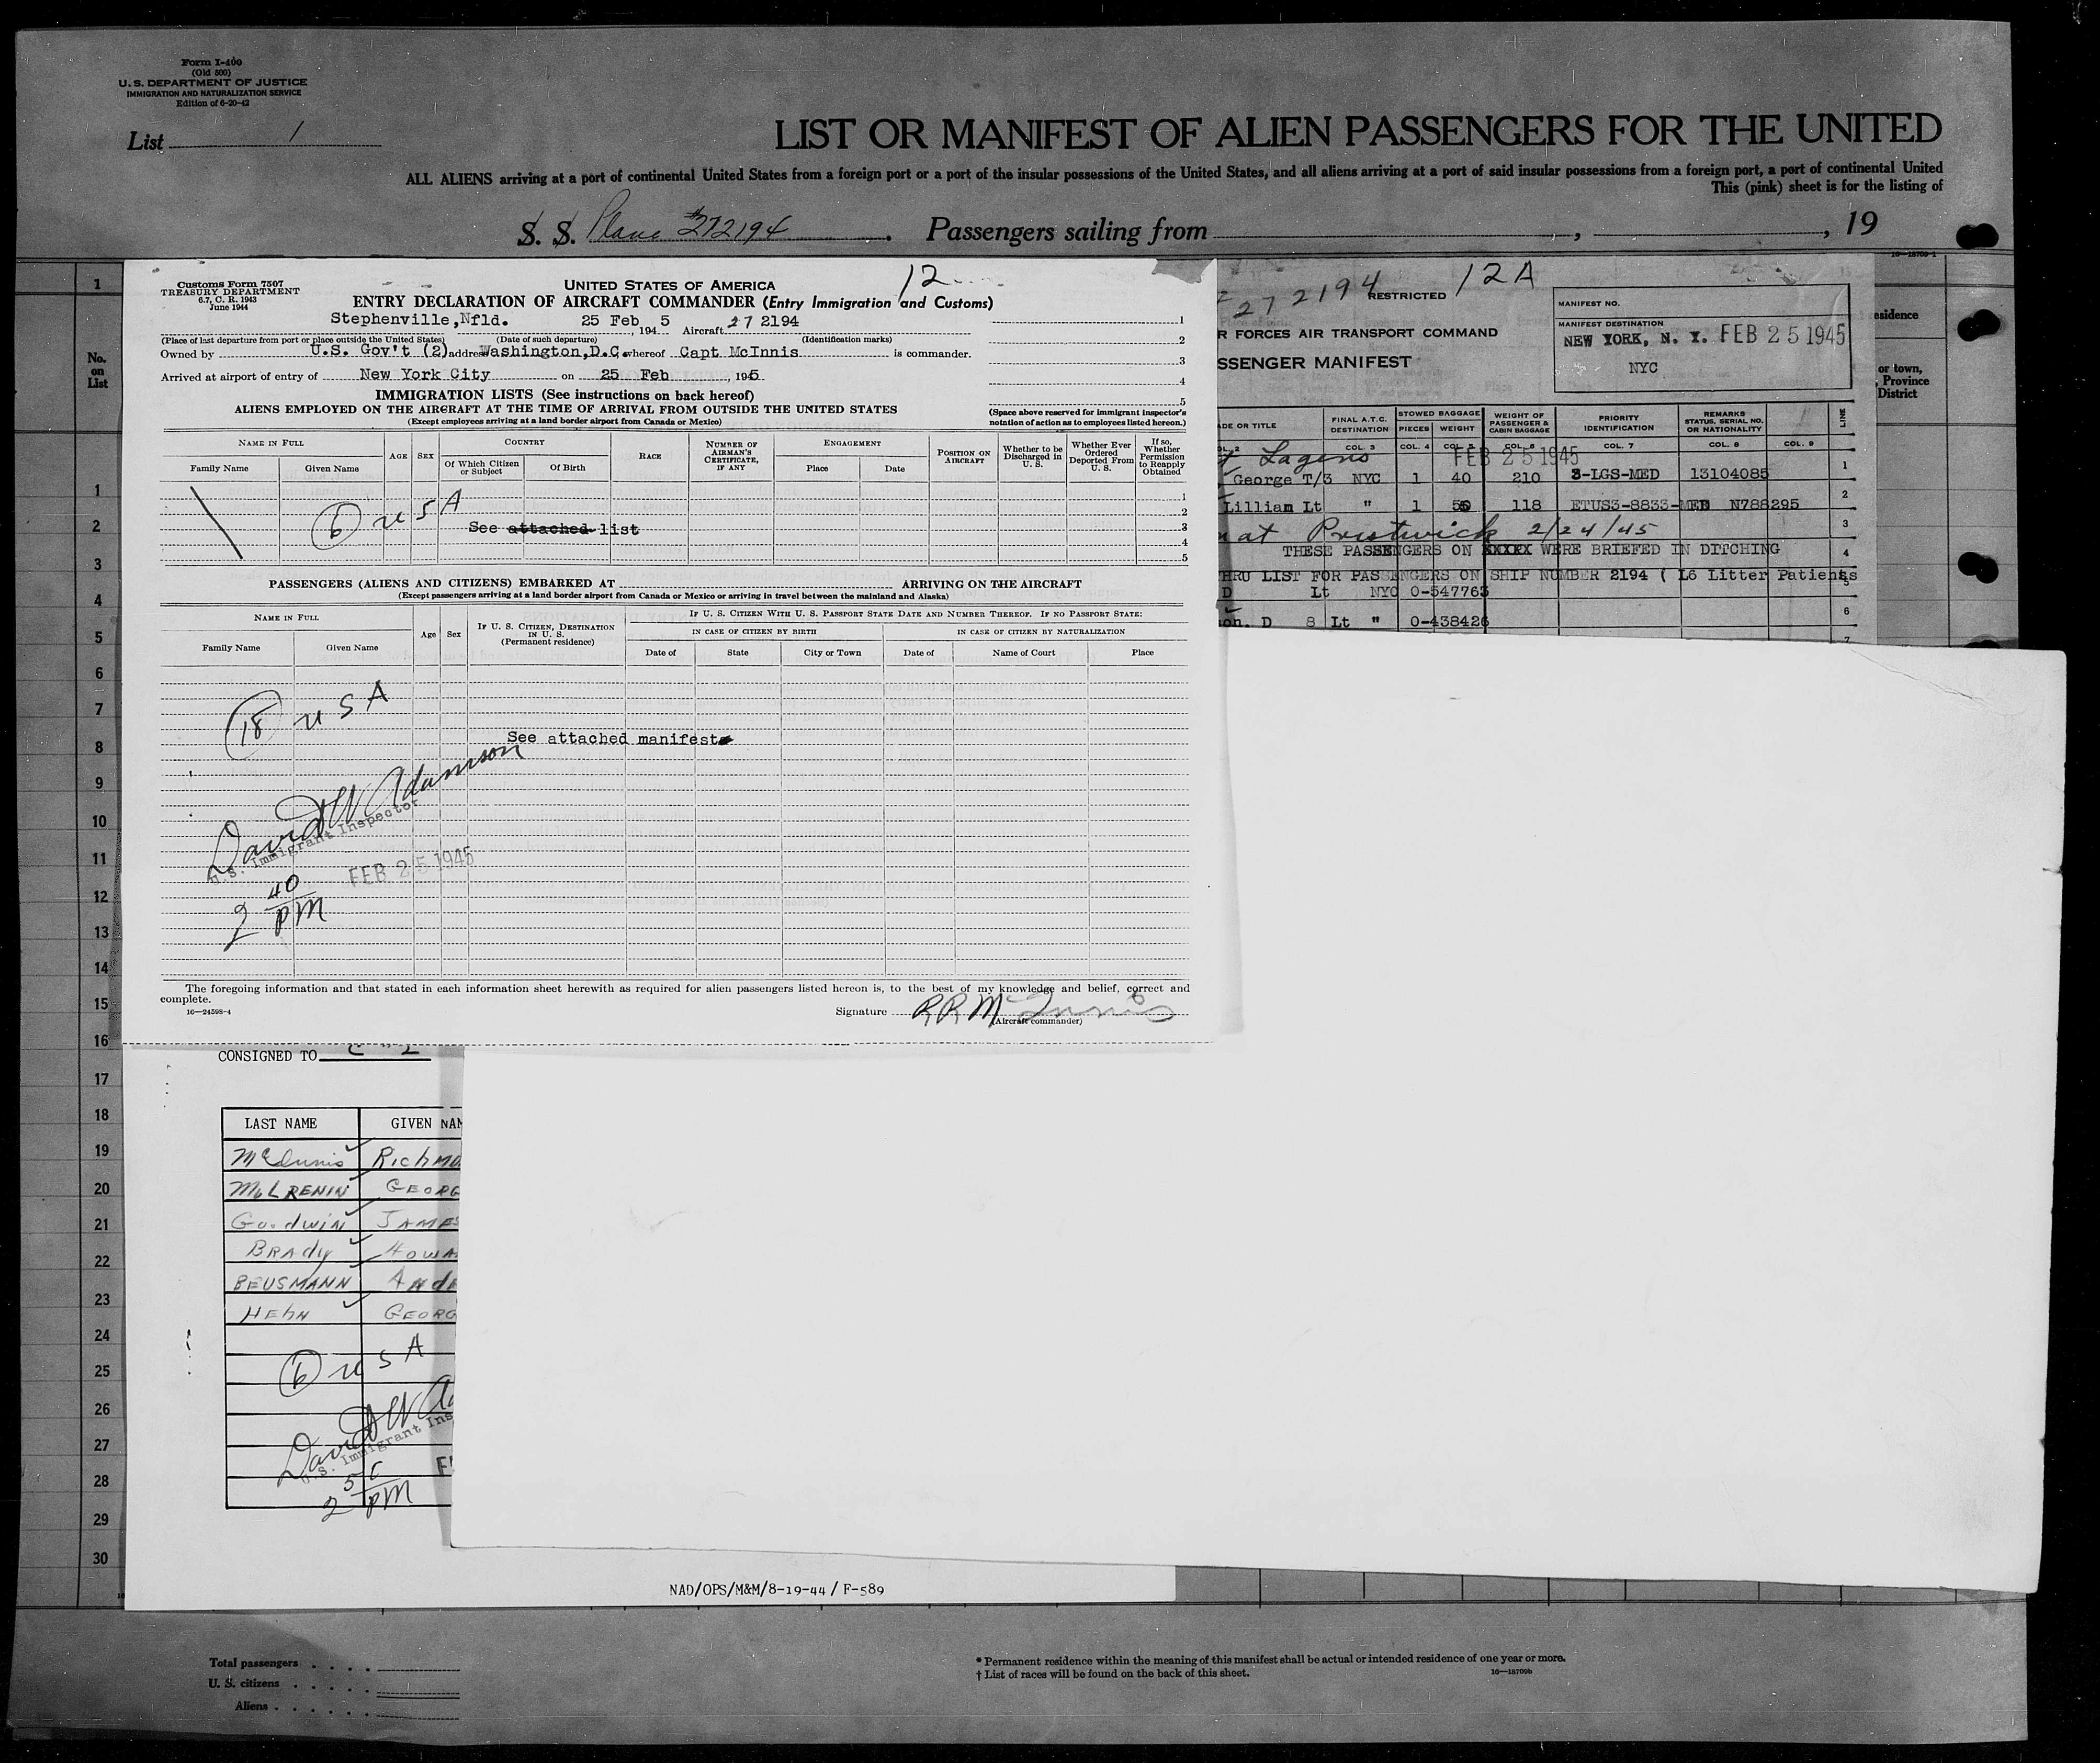 Form I-400
(Old 500)
U. S. DEPARTMENT OF JUSTICE
IMMIGRATION AND NATURALIZATION SERVICE
Edition of 6-20-42
List 1
LIST OR MANIFEST OF ALIEN PASSENGERS FOR THE UNITED
ALL ALIENS arriving at a port of continental United States from a foreign port or a port of the insular possessions of the United States, and all aliens arriving at a port of said insular possessions from a foreign port, a port of continental United
This (pink) sheet is for the listing of
S. S. Plane #272194. Passengers sailing from , , 19
No. on List
1
Customs Form 7507
TREASURY DEPARTMENT
6.7, C. R. 1943
June 1944
UNITED STATES OF AMERICA
12
ENTRY DECLARATION OF AIRCRAFT COMMANDER (Entry Immigration and Customs)
Stephenville,Nfld. 25 Feb 1945 Aircraft 27 2194
(Place of last departure from port or place outside the United States) (Date of such departure) (Identification marks)
Owned by U.S. Gov't (2) address Washington,D.C. whereof Capt McInnis is commander.
Arrived at airport of entry of New York City on 25 Feb, 1945
IMMIGRATION LISTS (See instructions on back hereof)
ALIENS EMPLOYED ON THE AIRCRAFT AT THE TIME OF ARRIVAL FROM OUTSIDE THE UNITED STATES
(Except employees arriving at a land border airport from Canada or Mexico)
1
2
3
4
5
(Space above reserved for immigrant inspector's notation of action as to employees listed hereon.)
NAME IN FULL
Family Name Given Name
AGE SEX
COUNTRY
Of Which Citizen or Subject Of Birth
RACE
NUMBER OF AIRMAN'S CERTIFICATE, IF ANY
ENGAGEMENT
Place Date
POSITION ON AIRCRAFT
Whether to be Discharged in U. S.
Whether Ever Ordered Deported From U. S.
If so, Whether Permission to Reapply Obtained
6 USA
See attached list
1
2
3
4
5
PASSENGERS (ALIENS AND CITIZENS) EMBARKED AT ARRIVING ON THE AIRCRAFT
(Except passengers arriving at a land border airport from Canada or Mexico or arriving in travel between the mainland and Alaska)
NAME IN FULL
Family Name Given Name
Age Sex
IF U. S. CITIZEN, DESTINATION IN U. S. (Permanent residence)
IF U. S. CITIZEN WITH U. S. PASSPORT STATE DATE AND NUMBER THEREOF. IF NO PASSPORT STATE:
IN CASE OF CITIZEN BY BIRTH IN CASE OF CITIZEN BY NATURALIZATION
Date of State City or Town Date of Name of Court Place
18 USA
See attached manifest
David W Adamson
U.S. Immigrant Inspector
FEB 25 1945
2 40 PM
The foregoing information and that stated in each information sheet herewith as required for alien passengers listed hereon is, to the best of my knowledge and belief, correct and
complete.
16—24598-4
Signature RR McInnis
(Aircraft commander)
272194 RESTRICTED 12A
R FORCES AIR TRANSPORT COMMAND
SSENGER MANIFEST
MANIFEST NO.
MANIFEST DESTINATION
NEW YORK, N. Y. FEB 25 1945
NYC
ADE OR TITLE
FINAL A.T.C. DESTINATION
STOWED BAGGAGE
PIECES WEIGHT
WEIGHT OF PASSENGER & CABIN BAGGAGE
PRIORITY IDENTIFICATION
REMARKS STATUS, SERIAL NO. OR NATIONALITY
LINE
COL. 3 COL. 4 COL. 5 COL. 6 COL. 7 COL. 8 COL. 9
Lagens FEB 25 1945
George T/3 NYC 1 40 210 3-LGS-MED 13104085 1
Lillian Lt " 1 55 118 ETUS3-8833-MED N788295 2
at Prestwick 2/24/45 3
THESE PASSENGERS ON XXXXX WERE BRIEFED IN DITCHING 4
THRU LIST FOR PASSENGERS ON SHIP NUMBER 2194 ( 16 Litter Patients 5
D Lt NYC 0-547763
on. D 8 Lt " 0-438426 6
7
esidence
or town,
, Province
District
1
2
3
4
5
6
7
8
9
10
11
12
13
14
15
16
17
18
19
20
21
22
23
24
25
26
27
28
29
30
CONSIGNED TO
LAST NAME GIVEN NAM
McInnis Richmo
GEORG
Goodwin JAMES
BRAdy HOWA
BEUSMANN AndR
HEhN GEORG
6 USA
David W A
U.S. Immigrant Ins
PM
NAD/OPS/M&M/8-19-44 / F-589
Total passengers
U. S. citizens
Aliens
* Permanent residence within the meaning of this manifest shall be actual or intended residence of one year or more.
† List of races will be found on the back of this sheet.
16—18709b